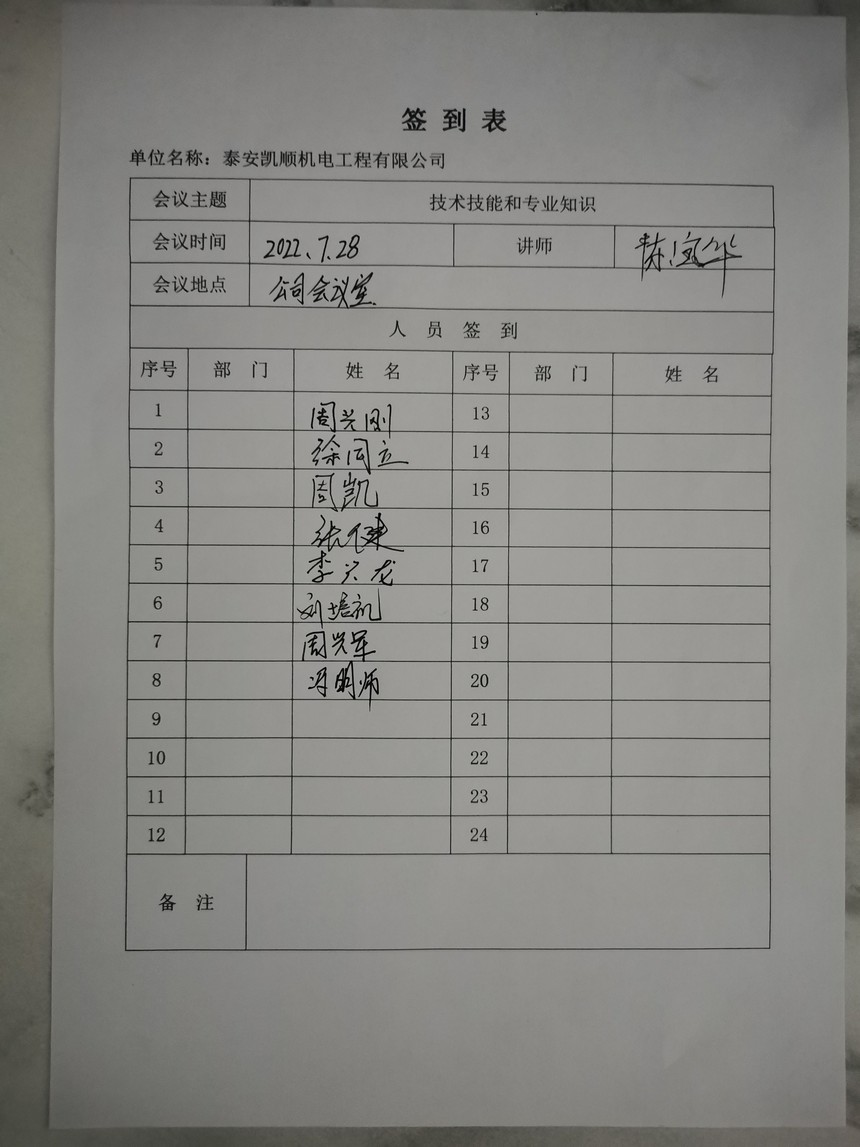 签到表
单位名称：泰安凯顺机电工程有限公司
会议主题 技术技能和专业知识
会议时间 2022、7.28 讲师 陈宝华
会议地点 公司会议室.
人员签到
序号 部门 姓名 序号 部门 姓名
1 周兴刚 13
2 徐同立 14
3 周凯 15
4 张健 16
5 李兴龙 17
6 刘培礼 18
7 周兴军 19
8 冯明师 20
9 21
10 22
11 23
12 24
备注